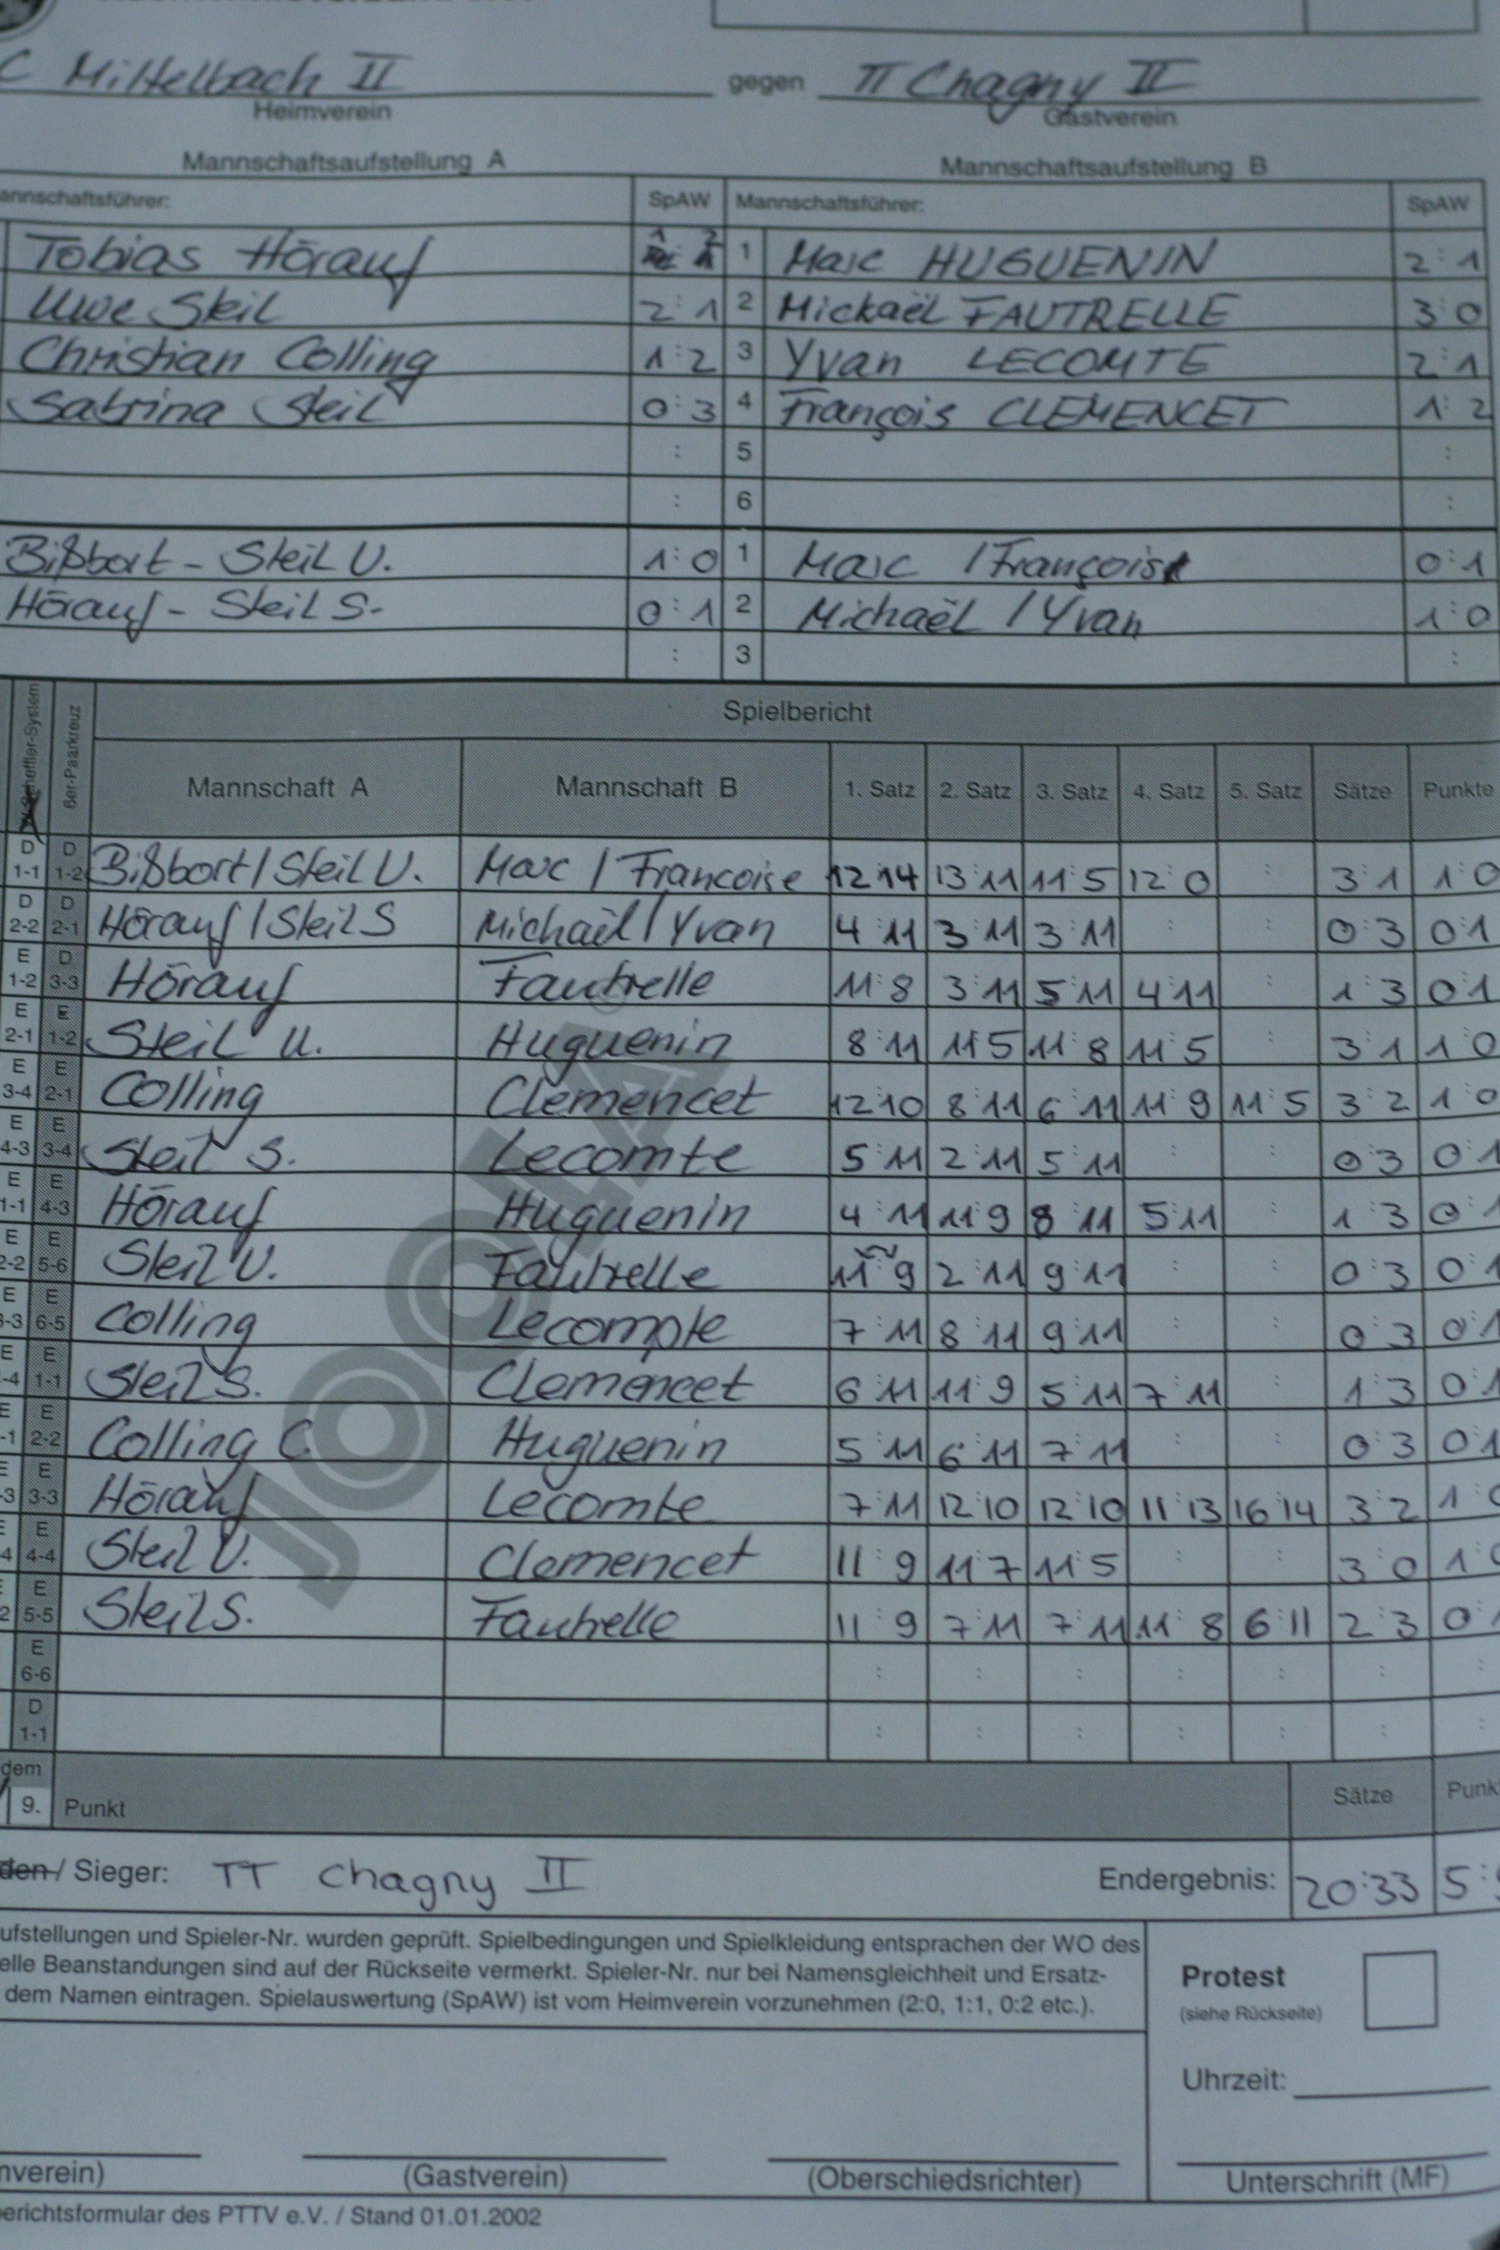 C Mittelbach II gegen TT Chagny II
Heimverein Gastverein
Mannschaftsaufstellung A Mannschaftsaufstellung B
annschaftsführer: SpAW Mannschaftsführer: SpAW
Tobias Hörauf 1 2 1 Marc HUGUENIN 2:1
Uwe Steil 2:1 2 Mickaël FAUTRELLE 3:0
Christian Colling 1:2 3 Yvan LECOMTE 2:1
Sabrina Steil 0:3 4 François CLEMENCET 1:2
: 5 :
: 6 :
Bißbort - Steil U. 1:0 1 Marc / Françoise 0:1
Hörauf - Steil S. 0:1 2 Michaël / Yvan 1:0
: 3 :
Scheffler-System 6er-Paarkreuz Spielbericht
Mannschaft A Mannschaft B 1. Satz 2. Satz 3. Satz 4. Satz 5. Satz Sätze Punkte
D 1-1 D 1-2 Bißbort / Steil U. Marc / Francoise 12:14 13:11 11:5 12:0 : 3:1 1:0
D 2-2 D 2-1 Hörauf / Steil S Michaël / Yvan 4:11 3:11 3:11 : : 0:3 0:1
E 1-2 D 3-3 Hörauf Fautrelle 11:8 3:11 5:11 4:11 : 1:3 0:1
E 2-1 E 1-2 Steil U. Huguenin 8:11 11:5 11:8 11:5 : 3:1 1:0
E 3-4 E 2-1 Colling Clemencet 12:10 8:11 6:11 11:9 11:5 3:2 1:0
E 4-3 E 3-4 Steil S. Lecomte 5:11 2:11 5:11 : : 0:3 0:1
E 1-1 E 4-3 Hörauf Huguenin 4:11 11:9 8:11 5:11 : 1:3 0:1
E 2-2 E 5-6 Steil U. Fautrelle 11:9 2:11 9:11 : : 0:3 0:1
E 3-3 E 6-5 Colling Lecompte 7:11 8:11 9:11 : : 0:3 0:1
E -4 E 1-1 Steil S. Clemencet 6:11 11:9 5:11 7:11 : 1:3 0:1
E -1 E 2-2 Colling C. Huguenin 5:11 6:11 7:11 : : 0:3 0:1
E -3 E 3-3 Hörauf Lecomte 7:11 12:10 12:10 11:13 16:14 3:2 1:0
E 4 E 4-4 Steil U. Clemencet 11:9 11:7 11:5 : : 3:0 1:0
E 2 E 5-5 Steil S. Fautrelle 11:9 7:11 7:11 11:8 6:11 2:3 0:
E 6-6 : : : : : : :
D 1-1 : : : : : : :
JOOLA
dem
9. Punkt Sätze Punk
den / Sieger: TT Chagny II Endergebnis: 20:33 5:
ufstellungen und Spieler-Nr. wurden geprüft. Spielbedingungen und Spielkleidung entsprachen der WO des
elle Beanstandungen sind auf der Rückseite vermerkt. Spieler-Nr. nur bei Namensgleichheit und Ersatz-
dem Namen eintragen. Spielauswertung (SpAW) ist vom Heimverein vorzunehmen (2:0, 1:1, 0:2 etc.).
Protest
(siehe Rückseite)
Uhrzeit:
nverein) (Gastverein) (Oberschiedsrichter) Unterschrift (MF)
erichtsformular des PTTV e.V. / Stand 01.01.2002